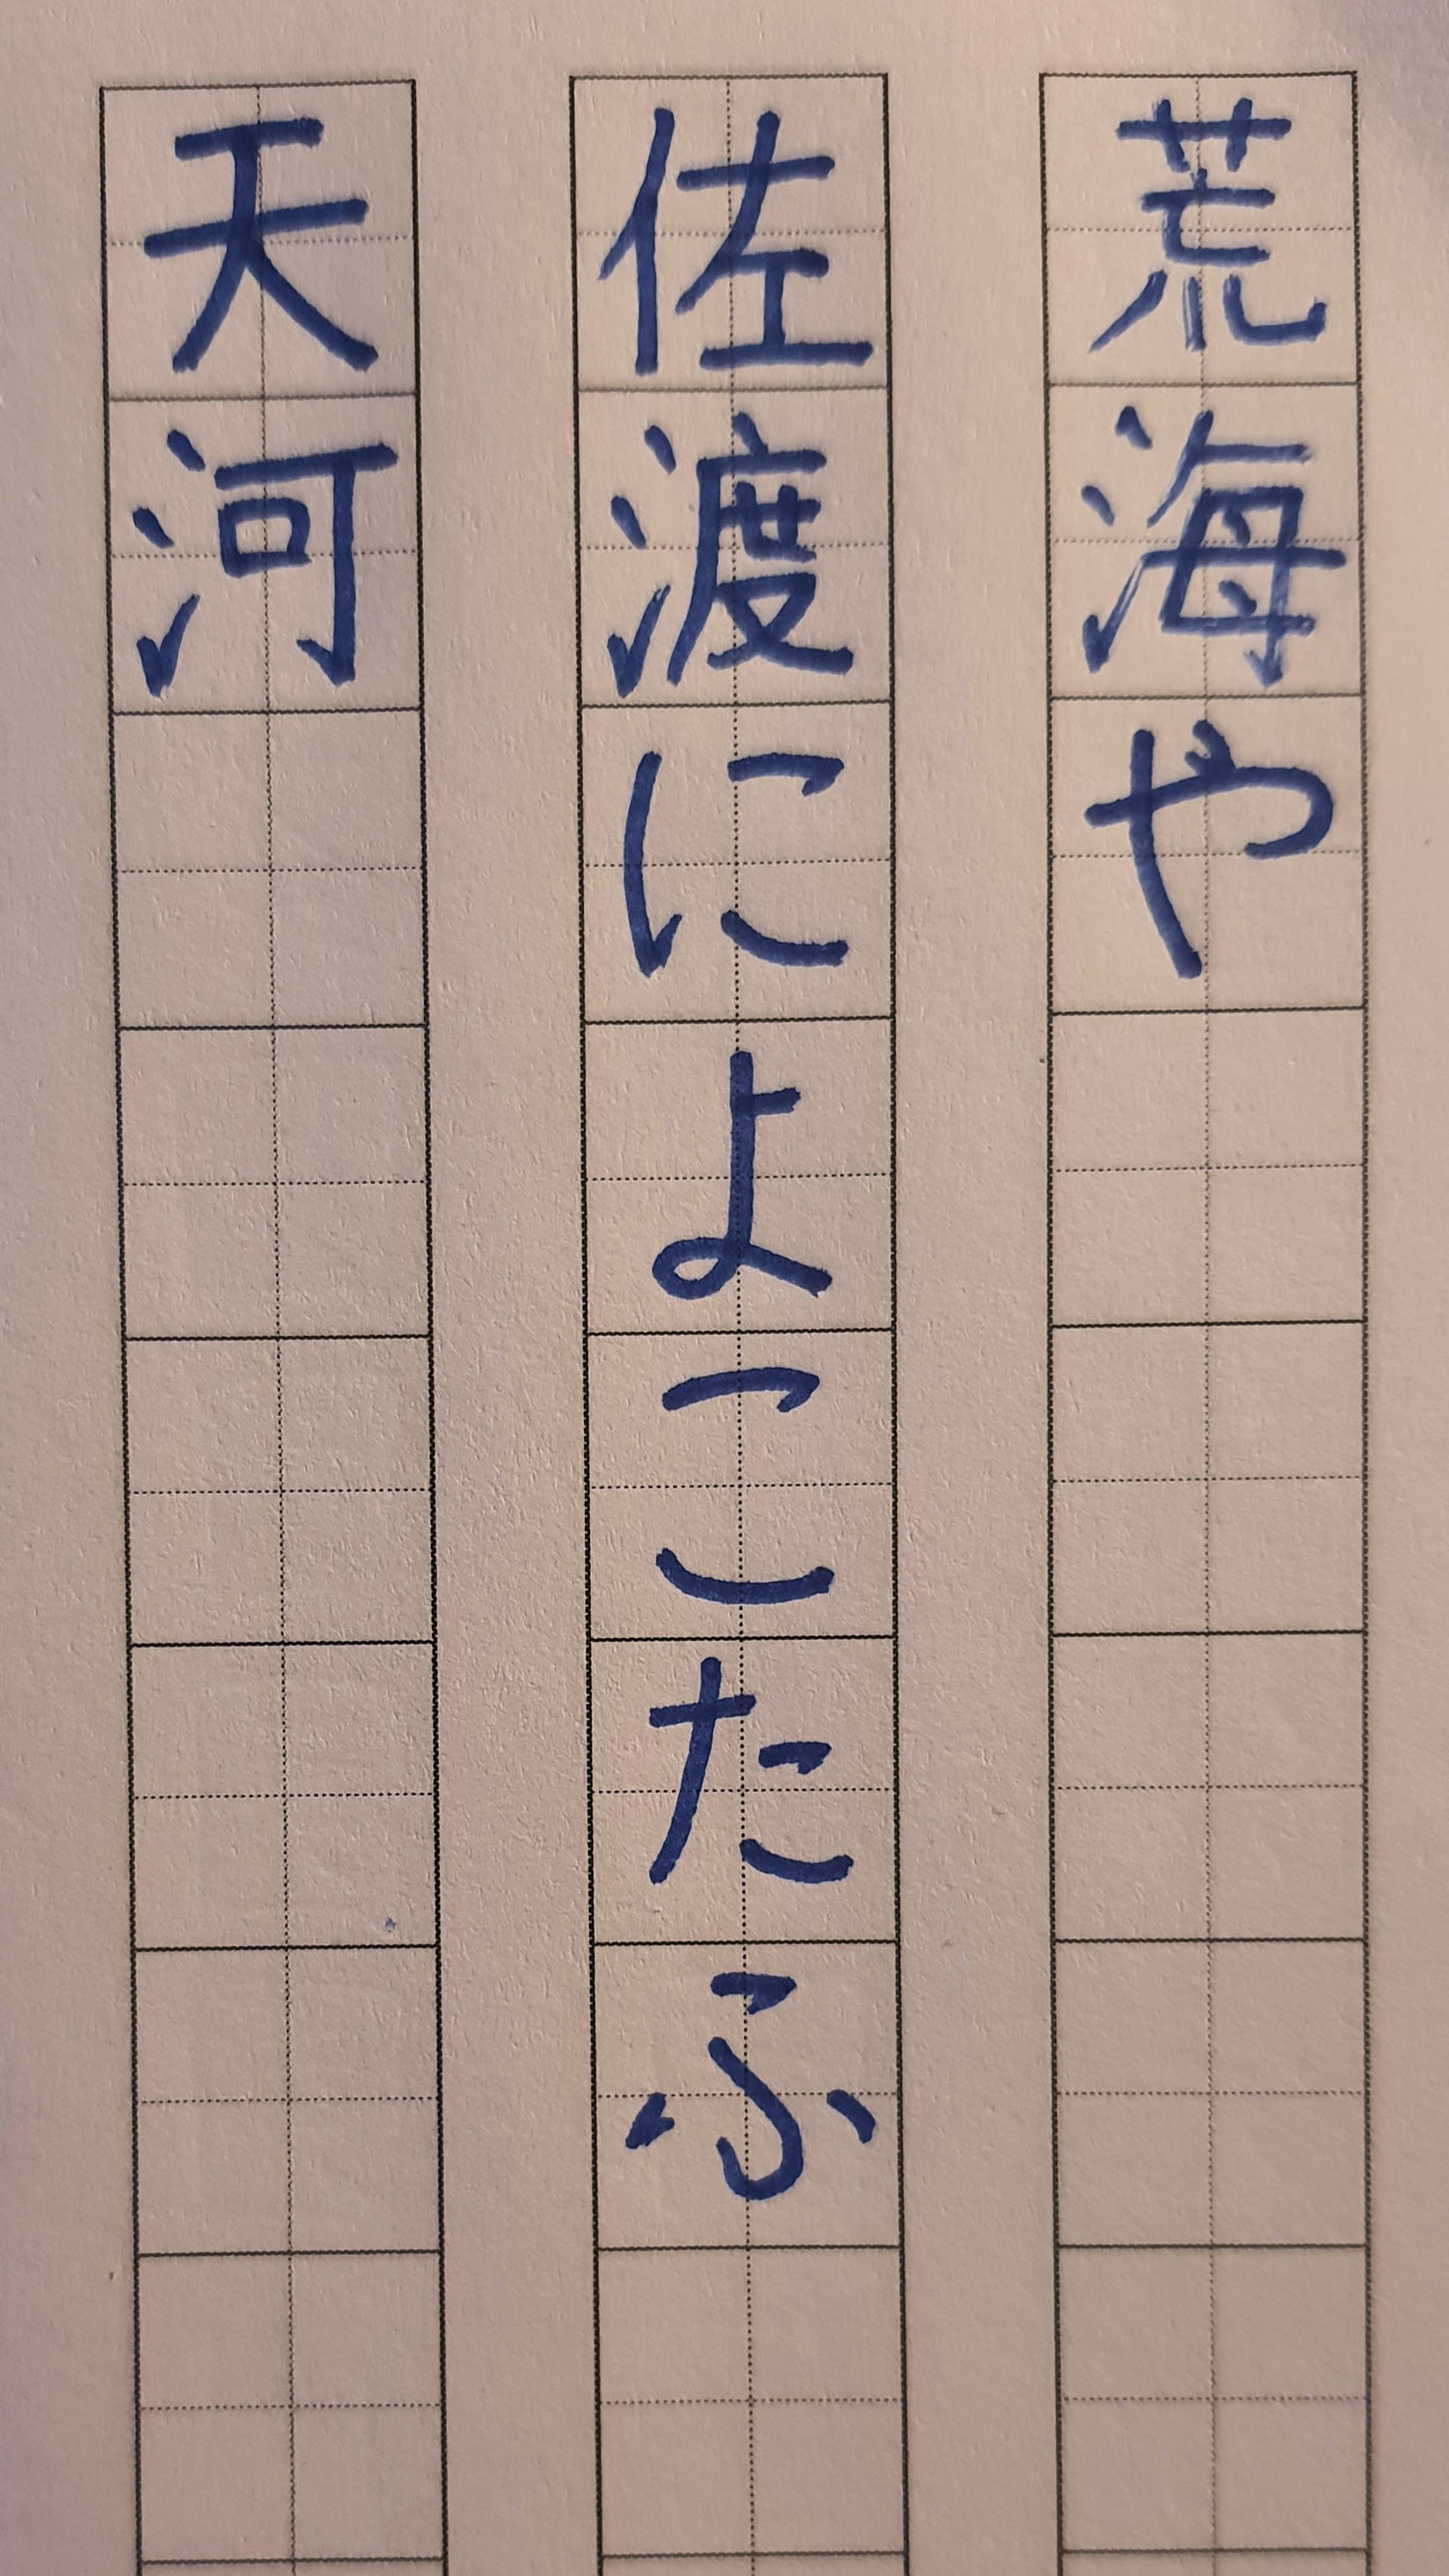 荒海や
佐渡によこたふ
天河